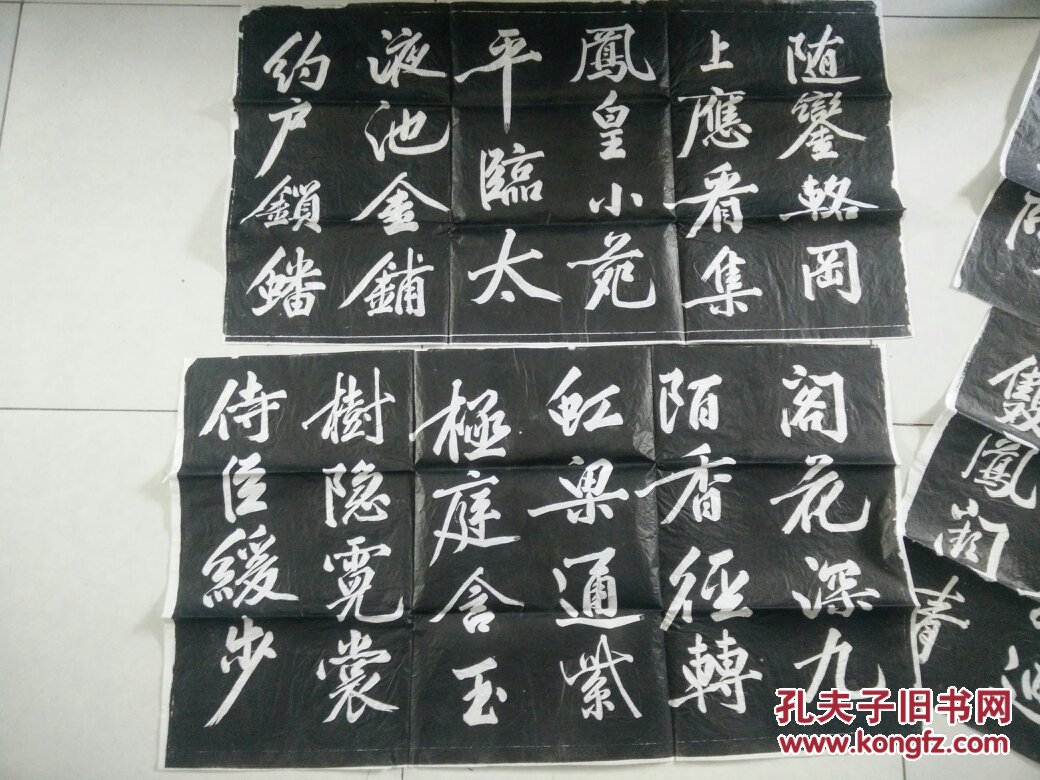 随鑾輅岡
上應看集
鳳皇小苑
平臨太
液池金鋪
約戶鎖蟠
閣花深九
陌香径轉
虹梁通紫
極庭含玉
樹隐霓裳
侍臣緩步
隻
鳳闕
青
孔夫子旧书网
www.kongfz.com